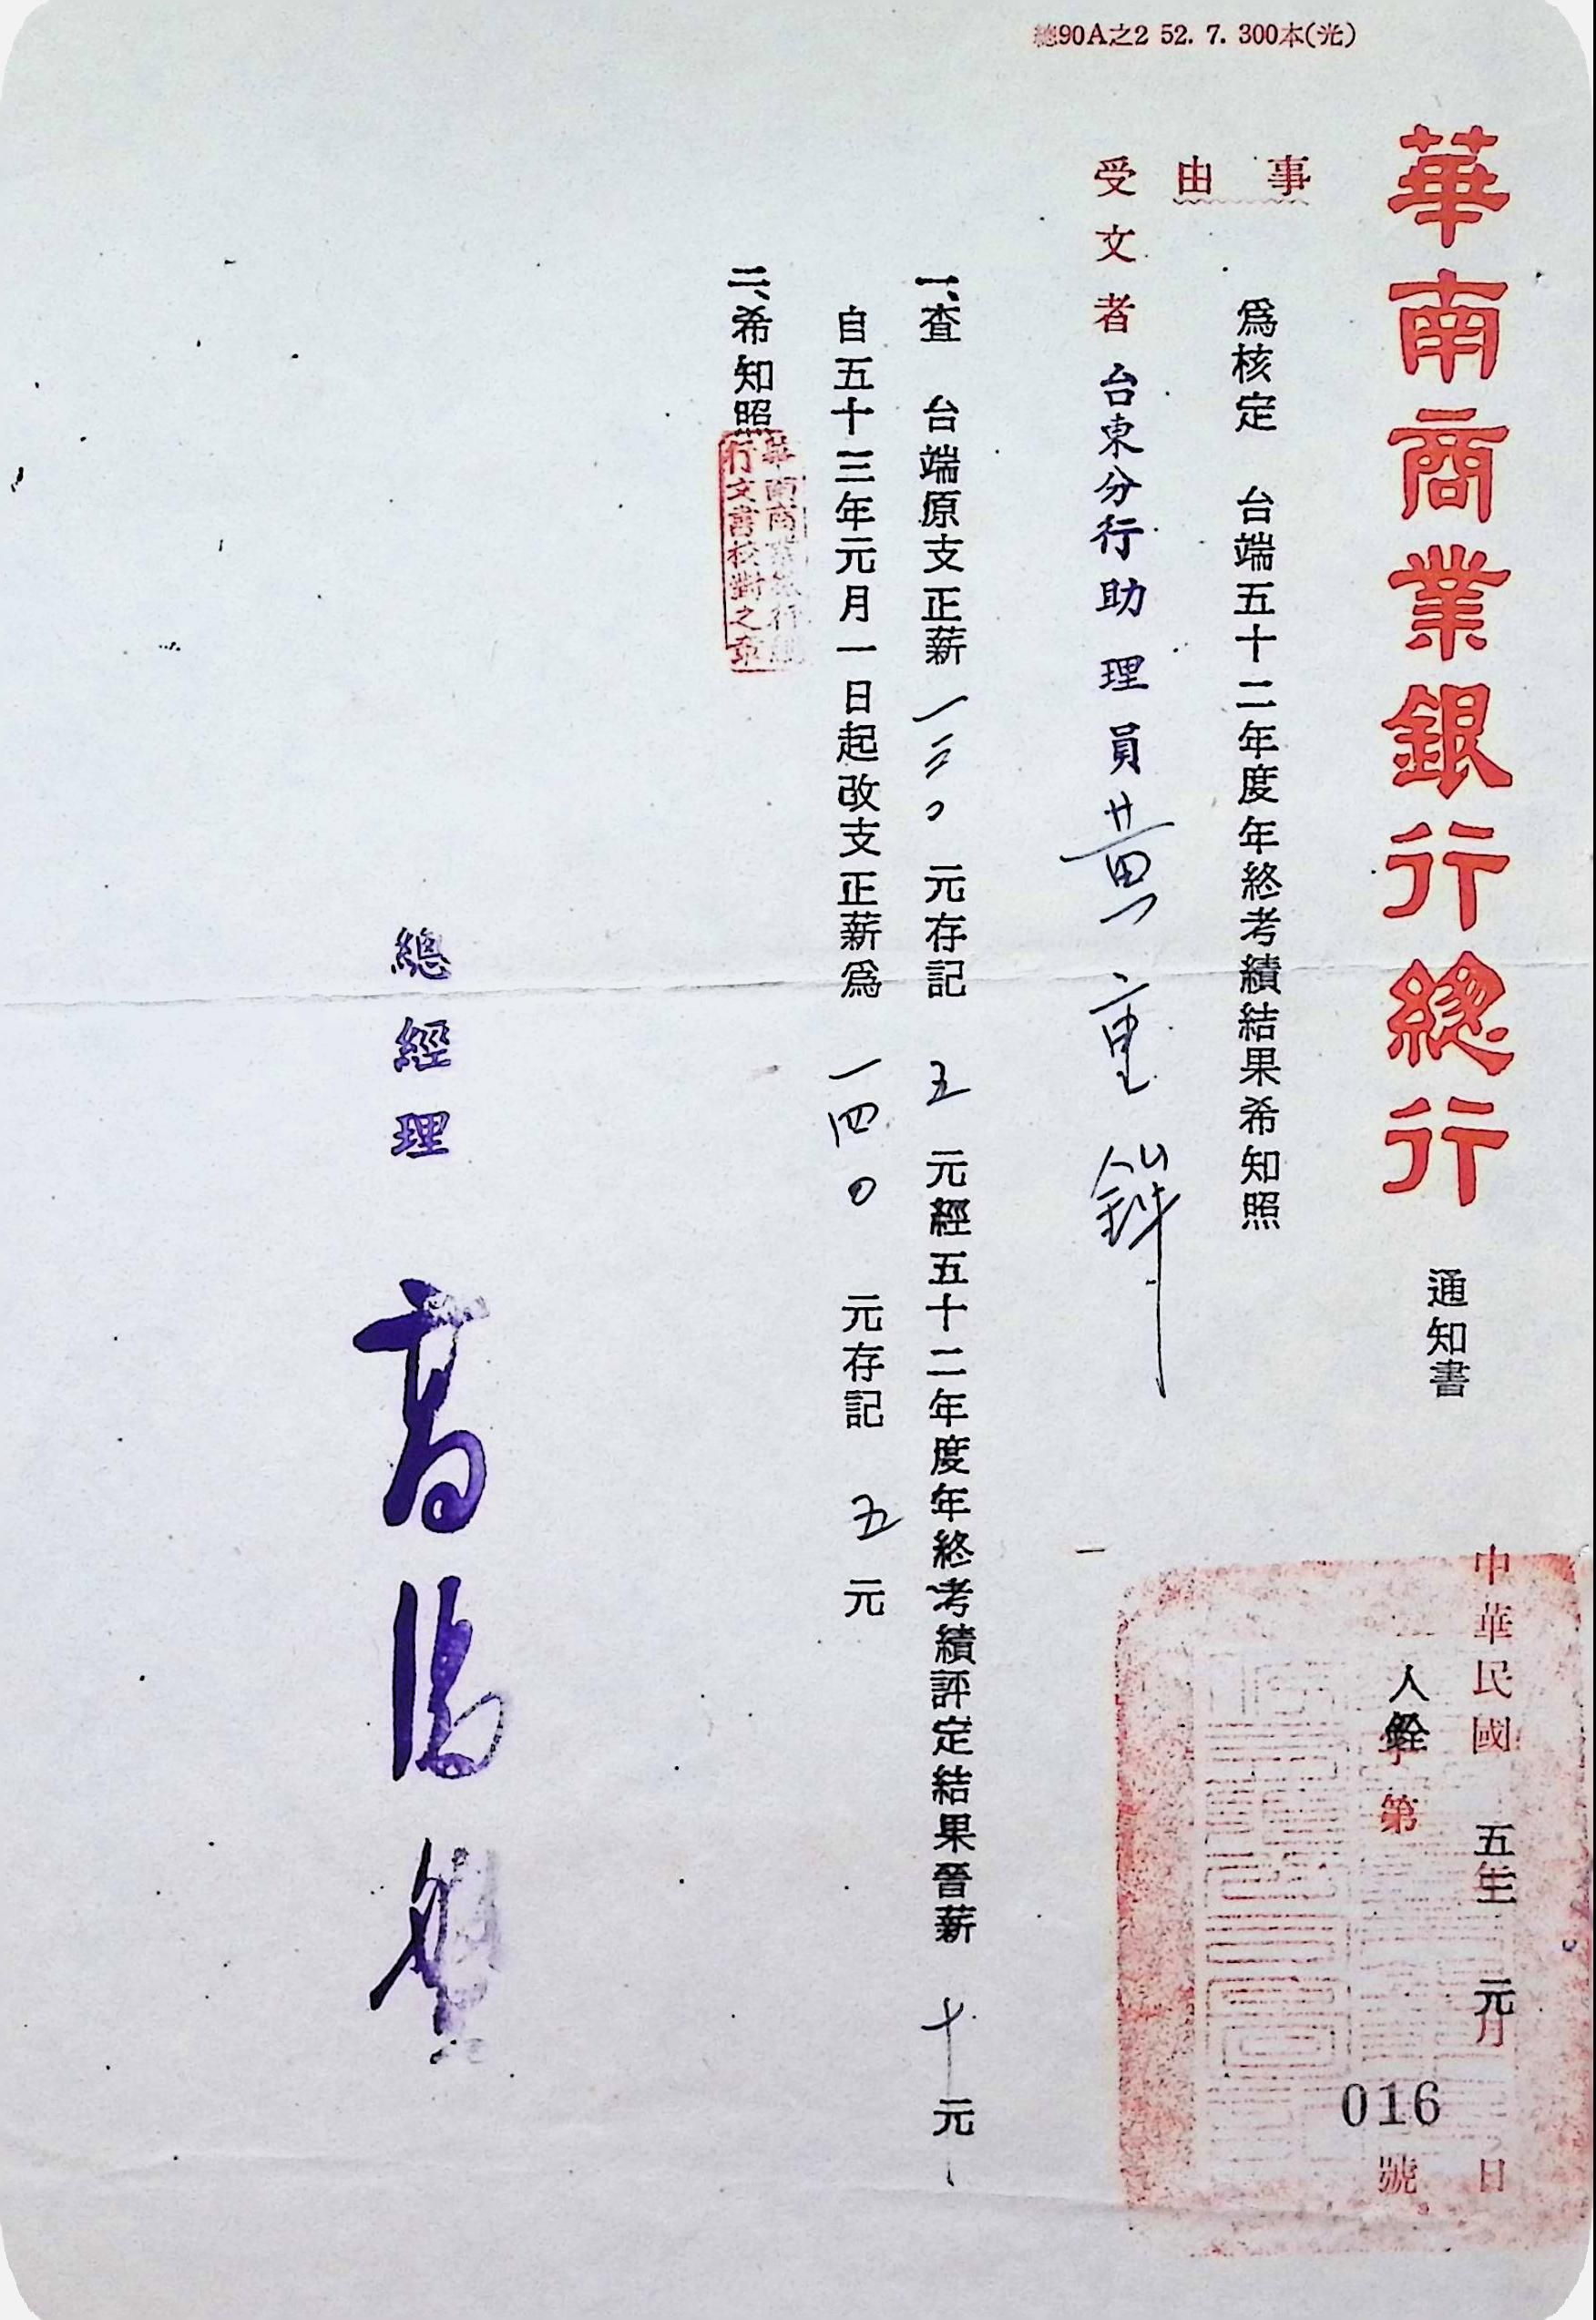 總90A之2 52. 7. 300本(光)
華南商業銀行總行 通知書
中華民國 五 年 元月 日
人銓字第 016 號
事由 爲核定 台端五十二年度年終考績結果希知照
受文者 台東分行助理員 黃重
一、查 台端原支正薪一三〇元存記 五 元經五十二年度年終考績評定結果晉薪 十 元
自五十三年元月一日起改支正薪爲 一四〇 元存記 五 元
二、希知照
華南商業銀行總
行文書校對之章
總經理 高湯盤